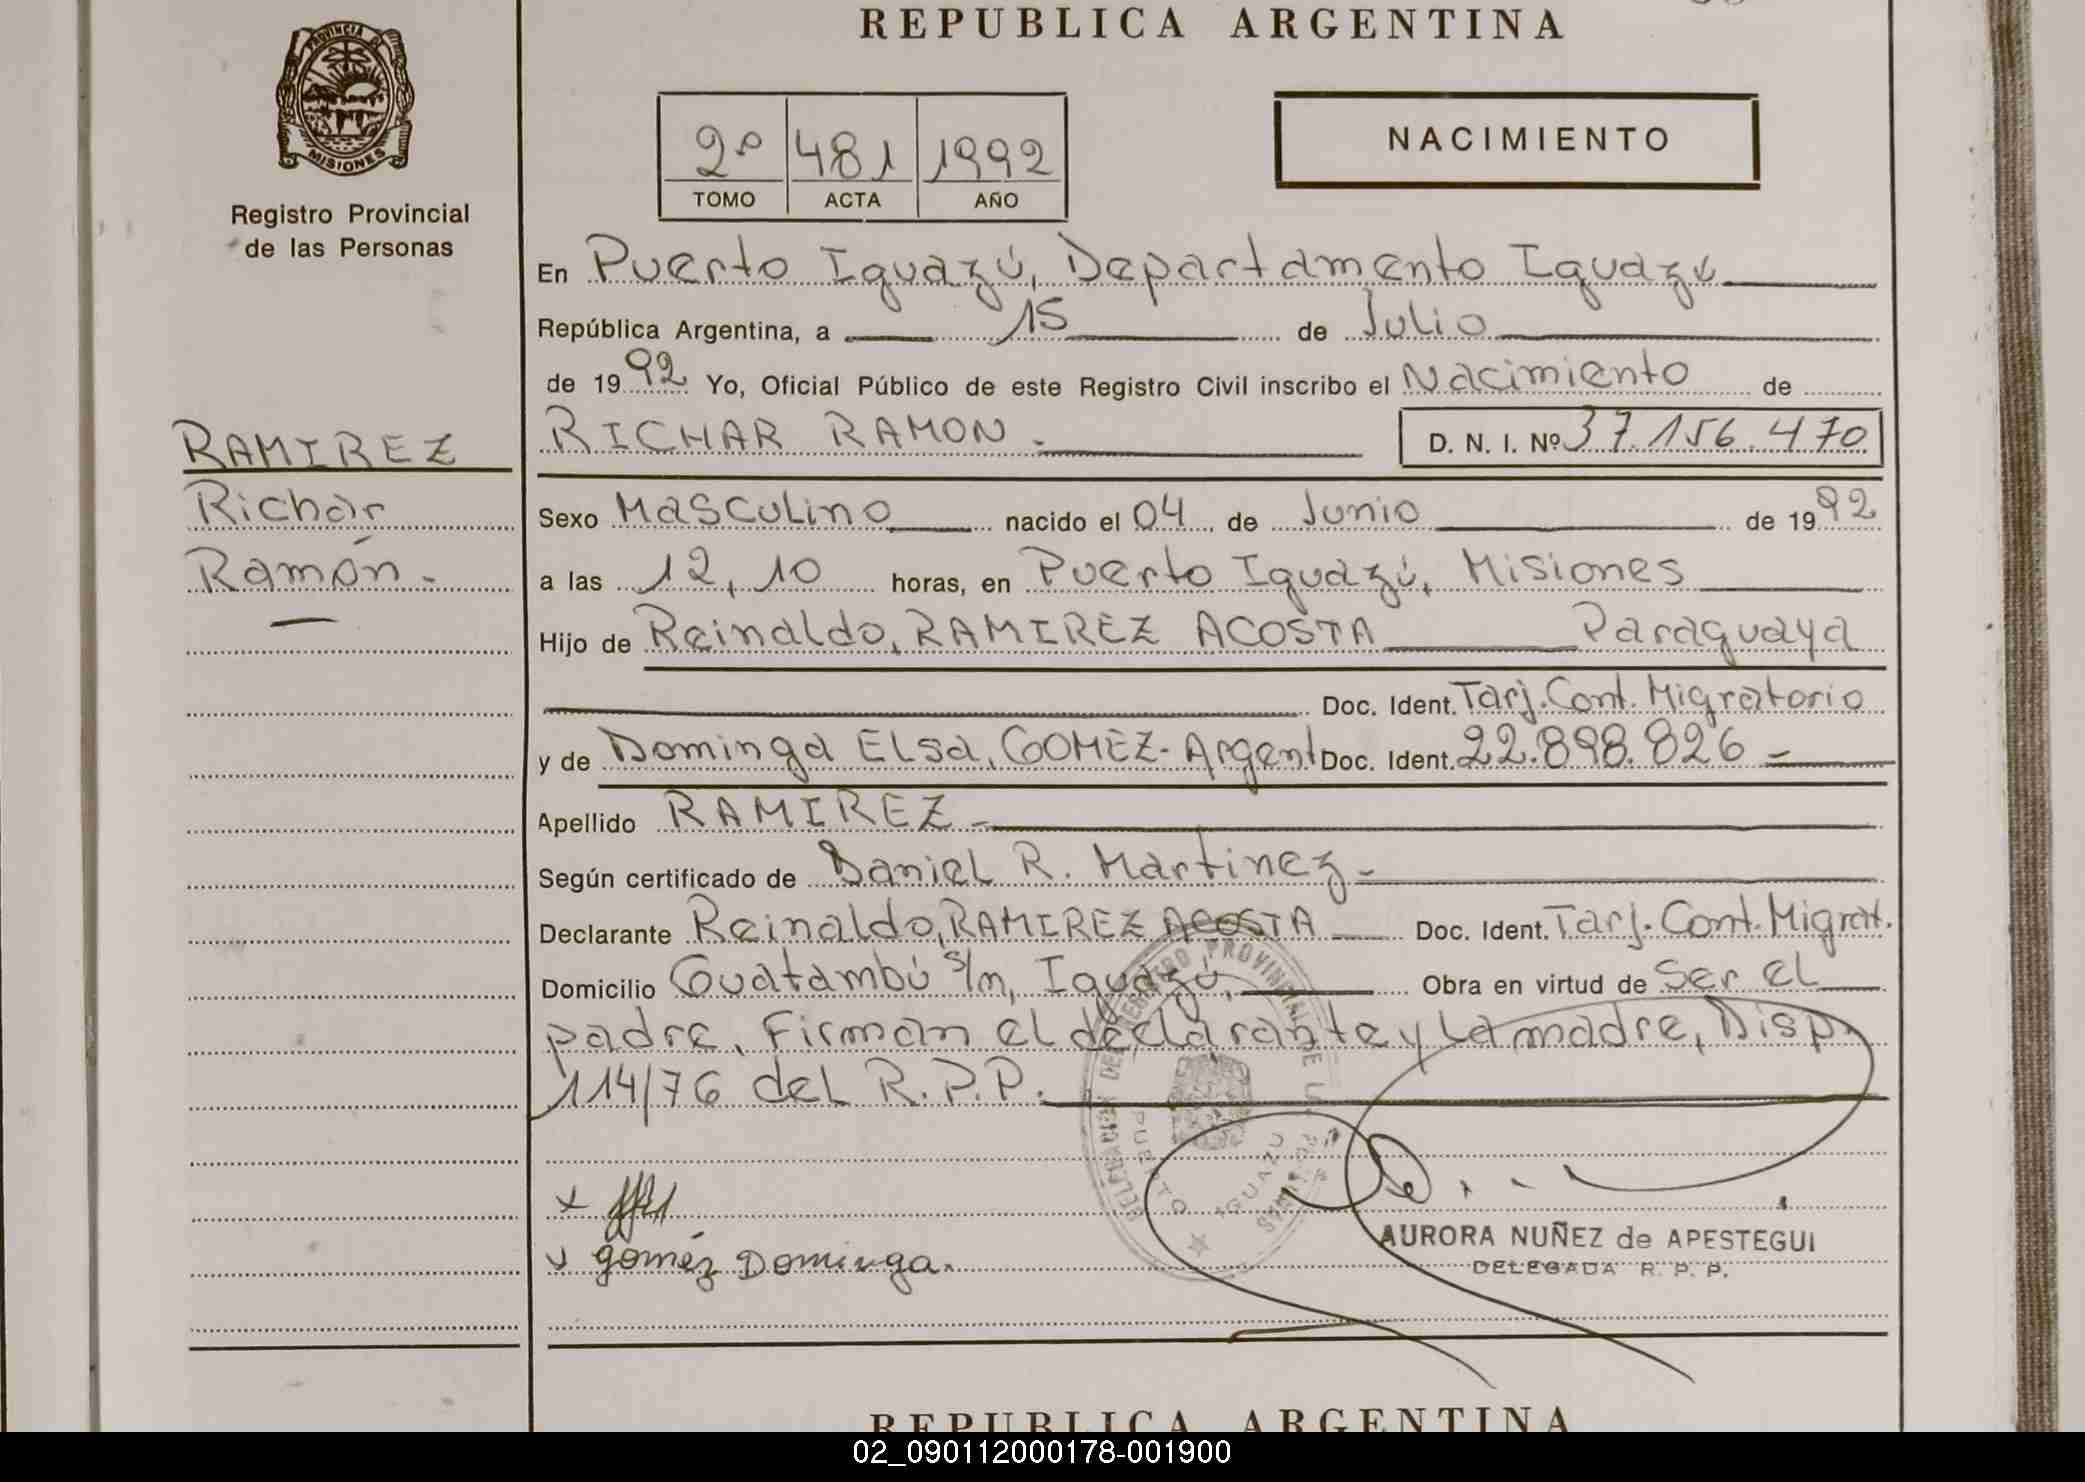 REPUBLICA ARGENTINA
PROVINCIA DE
MISIONES
Registro Provincial
de las Personas
2º 481 1992
TOMO ACTA AÑO
NACIMIENTO
En Puerto Iguazú, Departamento Iguazú
República Argentina, a 15 de Julio
de 1992 Yo, Oficial Público de este Registro Civil inscribo el Nacimiento de
RAMIREZ
Richar
Ramón.-
RICHAR RAMON.- D. N. I. Nº 37.156.470
Sexo Masculino nacido el 04 de Junio de 1992
a las 12,10 horas, en Puerto Iguazú, Misiones
Hijo de Reinaldo, RAMIREZ ACOSTA Paraguaya
Doc. Ident. Tarj. Cont. Migratorio
y de Dominga Elsa, GOMEZ- Argent Doc. Ident. 22.898.826 -
Apellido RAMIREZ -
Según certificado de Daniel R. Martinez -
Declarante Reinaldo, RAMIREZ ACOSTA Doc. Ident. Tarj. Cont. Migrat.
Domicilio Guatambú s/n, Iguazú, Obra en virtud de Ser el
padre, Firman el declarante y La madre, Disp.
114/76 del R.P.P.
PROVINCIAL DE LAS
PUERTO IGUAZU
x
gomez Dominga.
AURORA NUÑEZ de APESTEGUI
DELEGADA R. P. P.
REPUBLICA ARGENTINA
02_090112000178-001900